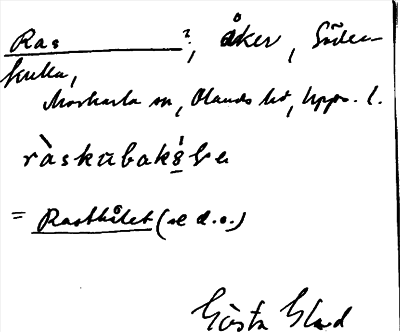 Ras ?, åker, Söder-
kulla,
Morkarla sn, Olands hd, Upps. l.
ràskùbakɩ̣e
= Rasthålet (se d.o.)
Gösta Glad